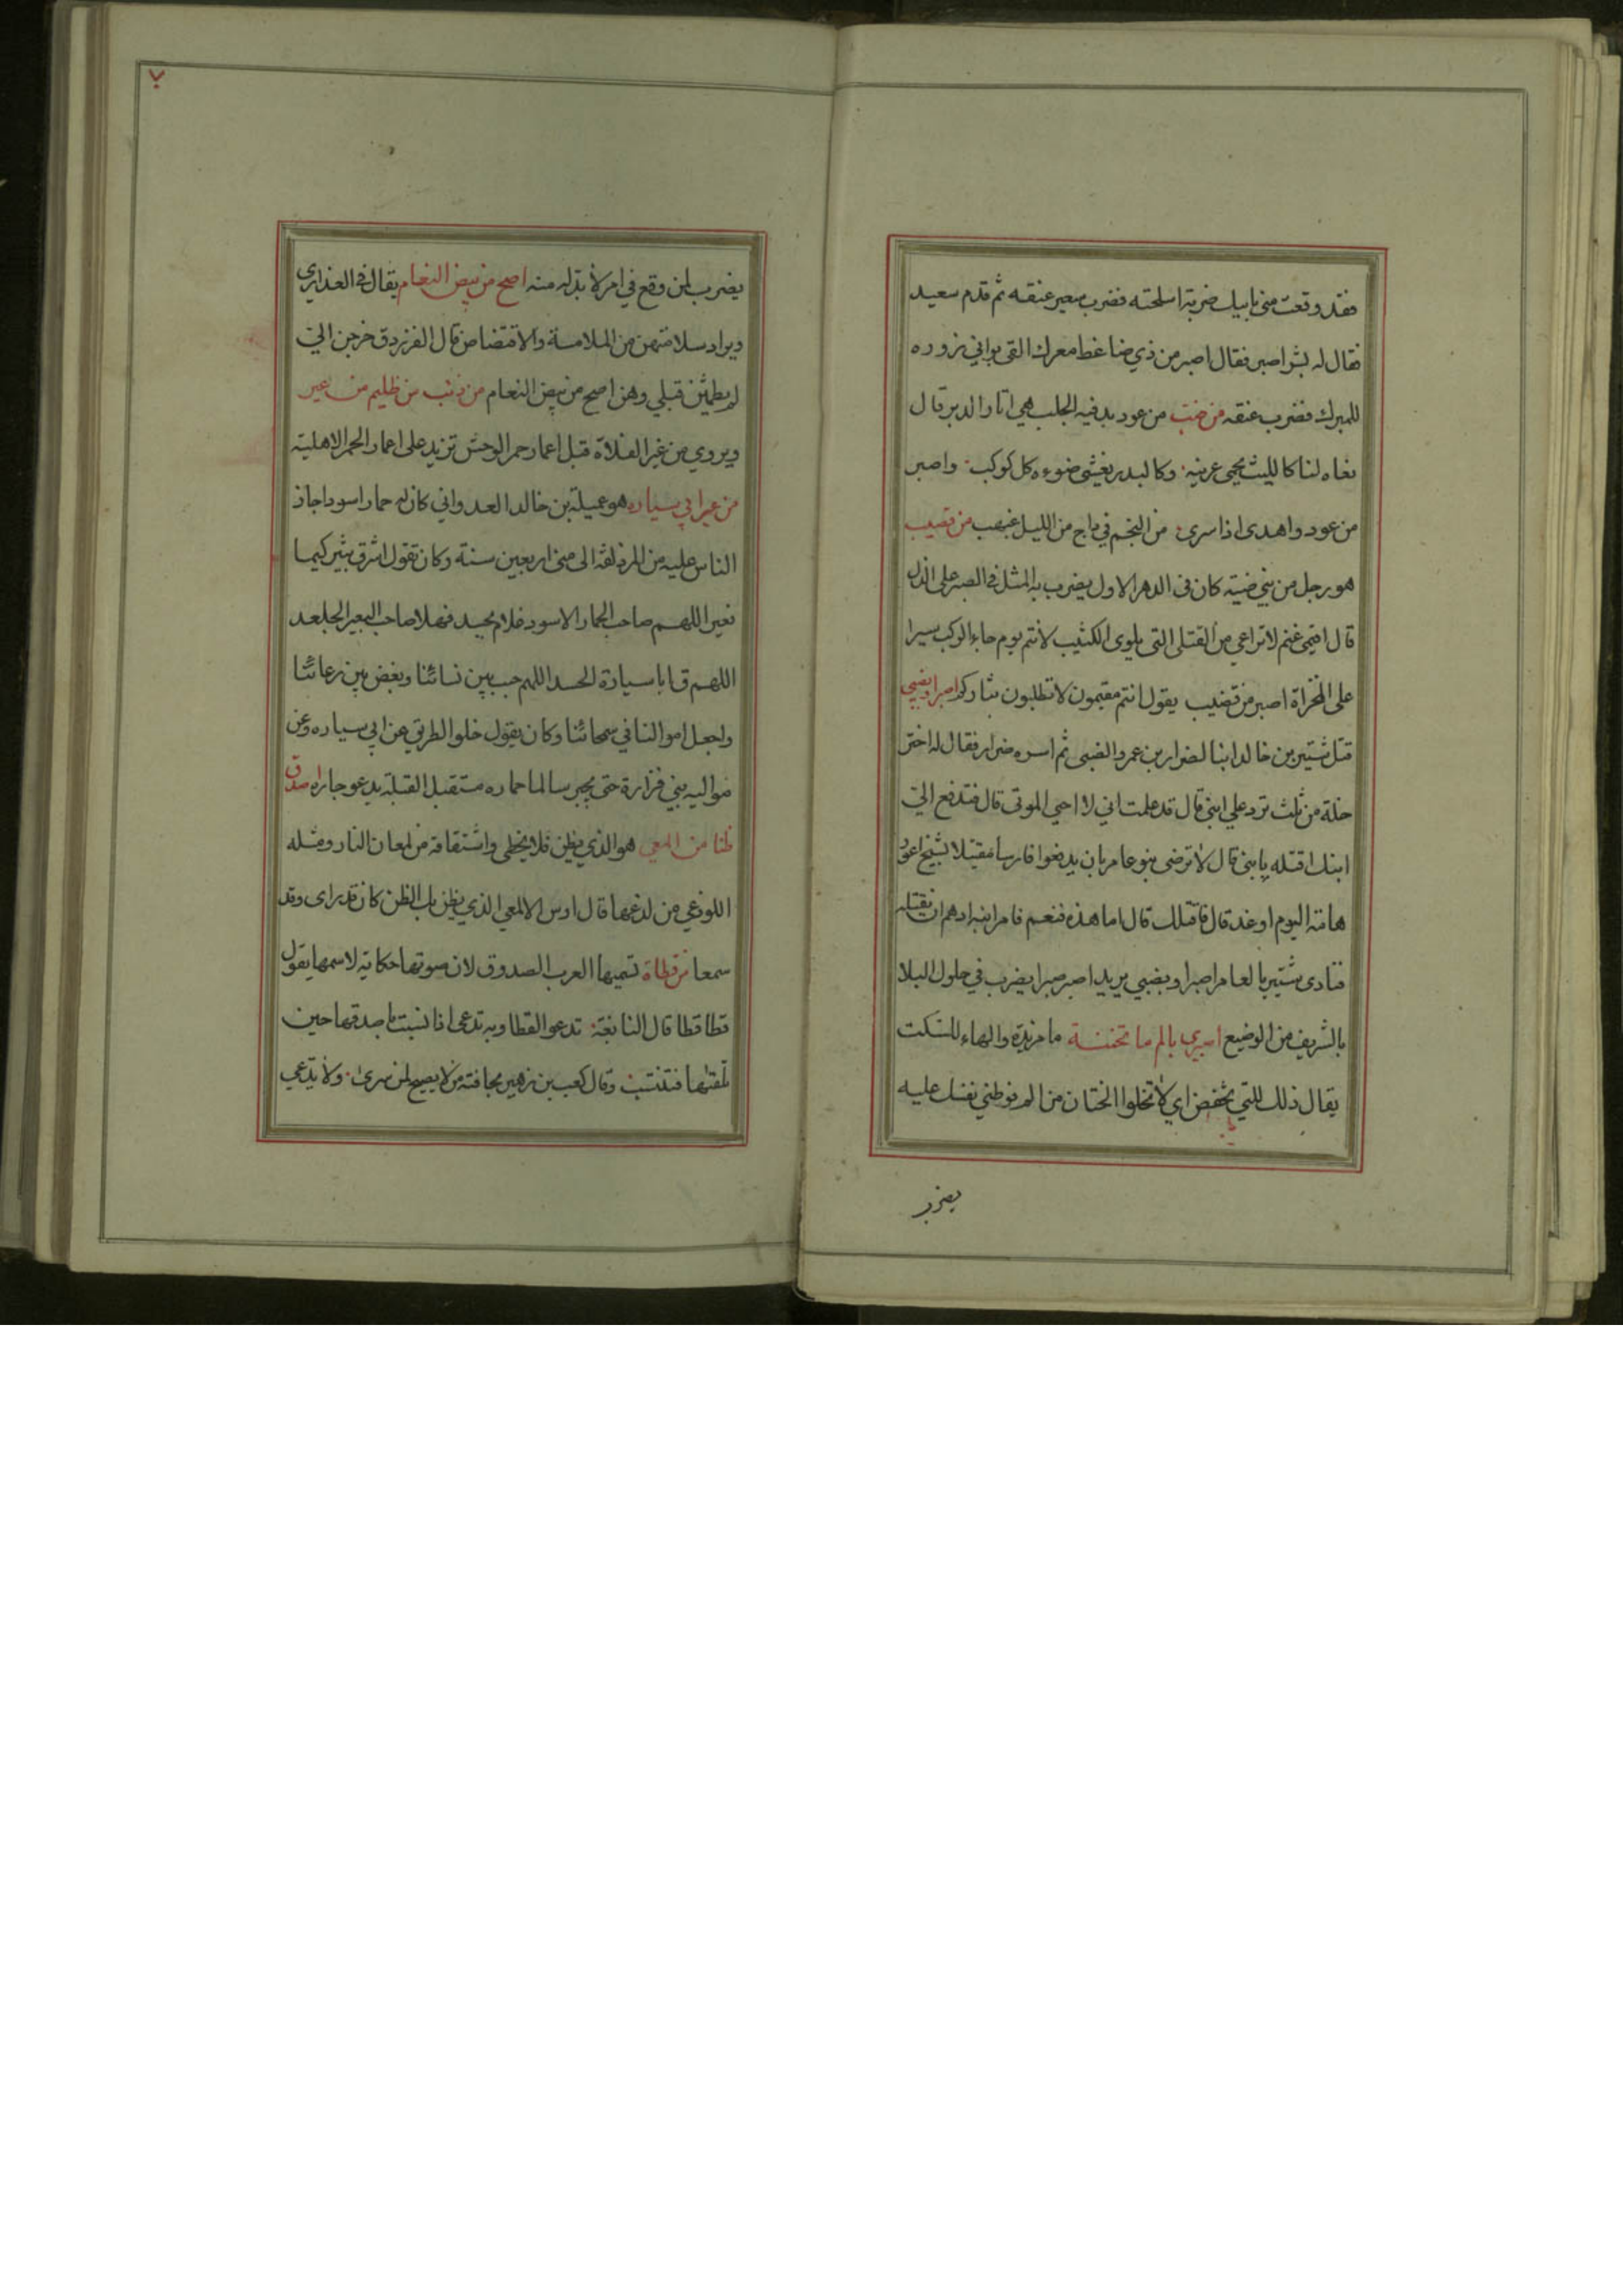 فقد وقعت مني بابيك ضربة اسلحته فضرب سعير عنقه ثم قدم سعيد
فقال له بشر اصبر فقال اصبر من ذي ضاغط معرك القى بواني زوره
للمبرك فضرب عنقه من ضب من عود بدفيه الجلب هي اثار الدبر قال
بغاه لنا كالليث يحمى عرينه وكالبدر يغشى ضوءه كل كوكب واصبر
من عود واهدى اذا سرى من النجم في داج من الليل غيهب من قضيب
هو رجل من بني ضبة كان في الدهر الاول يضرب به المثل في الصبر على الذل
قال اقيمى غنم لا تراعي من القتلى التي بلوى الكثيب لانتم يوم جاء الركب سيرا
على المخزاة اصبر من قضيب يقول انتم مقيمون لا تطلبون بثاركم اصبرا وبضبي
قتل شتير بن خالد ابنا لضرار بن عمرو الضبى ثم اسره ضرار فقال له اختر
خلة من ثلث ترد علي ابني قال قد علمت اني لا احيي الموتى قال فتدفع الي
ابنك اقتله يا بني قال لا ترضى بنو عامر بان يدفعوا فارسا مقتبلا بشيخ اعور
هامة اليوم او غد قال فاقتلك قال اما هذه فنعم فامر ابنه ادهم ان يقتله
فنادى شتير بالعامر اصبرا وبضبي يريد اصبر صبرا يضرب في حلول البلا
بالشريف من الوضيع اصبري بالم ما تختننه ما مزيدة والهاء للسكت
يقال ذلك للتي تخفض اي لا تخلوا الختان من الم فوطني نفسك عليه
يضرب
٧
يضرب لمن وقع في امر لا بد له منه اصح من بيض النعام يقال في العذارى
ويراد سلامتهن من الملامسة والاقتضاض قال الفرزدق خرجن الي
لم يطمثن قبلي وهن اصح من بيض النعام من ذئب من ظليم من عير
ويروى من عير الفلاة قيل اعمار حمر الوحش تزيد على اعمار الحمر الاهلية
من عير ابي سياره هو عميلة بن خالد العدواني كان له حمار اسود اجاز
الناس عليه من المزدلفة الى منى اربعين سنة وكان تقول اشرق ثبير كيما
نغير اللهم صاحب الحمار الاسود فلام يحيد فهلا صاحب البعير الجلعد
اللهم ق ابا سيارة الحسد اللهم حبب بين نسائنا وبغض بين رعائنا
واجعل اموالنا في سمحائنا وكان يقول خلوا الطريق عن ابي سياره وعن
مواليه بني فزارة حتى يجيز سالما حماره مستقبل القبلة يدعو جاره اصدق
ظنا من المعي هو الذي يظن فلا يخطى واشتقاقه من لمعان النار ومثله
اللوذعي من لذعها قال اوس الالمعي الذي يظن بك الظن كان قد راى وقد
سمعا من قطاة تسميها العرب الصدوق لان صوتها حكاية لاسمها يقول
قطا قطا قال النابغة تدعو القطا وبه تدعى اذا نسبت يا صدقها حين
تلقاها فتنتسب وقال كعب بن زهير من لا يصيح لمن سرى ولا يدعي